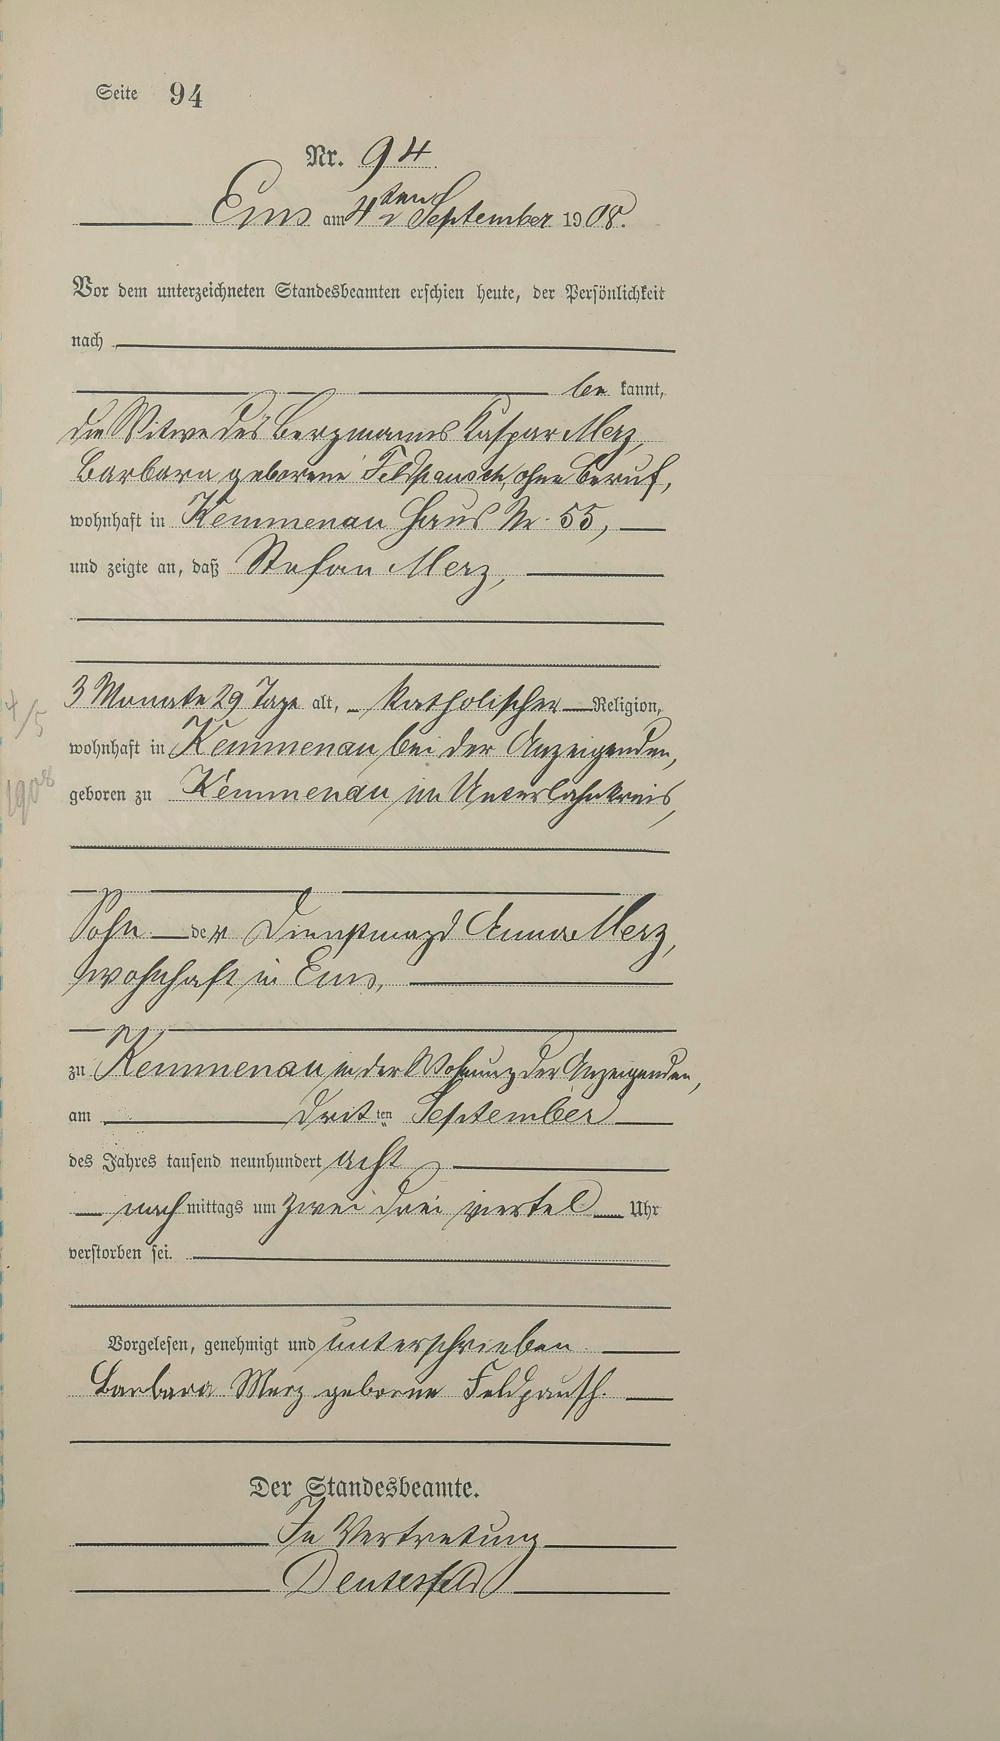 Seite 94
Nr. 94
Ems am 4ten September 1908.
Vor dem unterzeichneten Standesbeamten erschien heute, der Persönlichkeit
nach
be kannt,
die Witwe des Bergmanns Kaspar Merz,
Barbara geborene Feldpausch, ohne Beruf,
wohnhaft in Kemmenau Haus Nr. 55,
und zeigte an, daß Stefan Merz,
3 Monate 29 Tage alt, katholischer Religion,
4/5
wohnhaft in Kemmenau bei der Anzeigenden,
1908
geboren zu Kemmenau im Unterlahnkreis,
Sohn der Dienstmagd Anna Merz,
wohnhaft in Ems,
zu Kemmenau in der Wohnung der Anzeigenden,
am dritten September
des Jahres tausend neunhundert acht
nachmittags um zwei drei viertel Uhr
verstorben sei.
Vorgelesen, genehmigt und unterschrieben
Barbara Merz geborene Feldpausch.
Der Standesbeamte.
In Vertretung